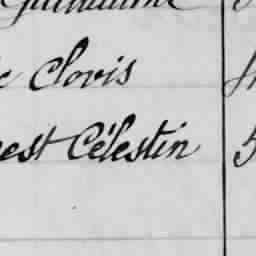 Guillaume
c Clovis
est Célestin 5